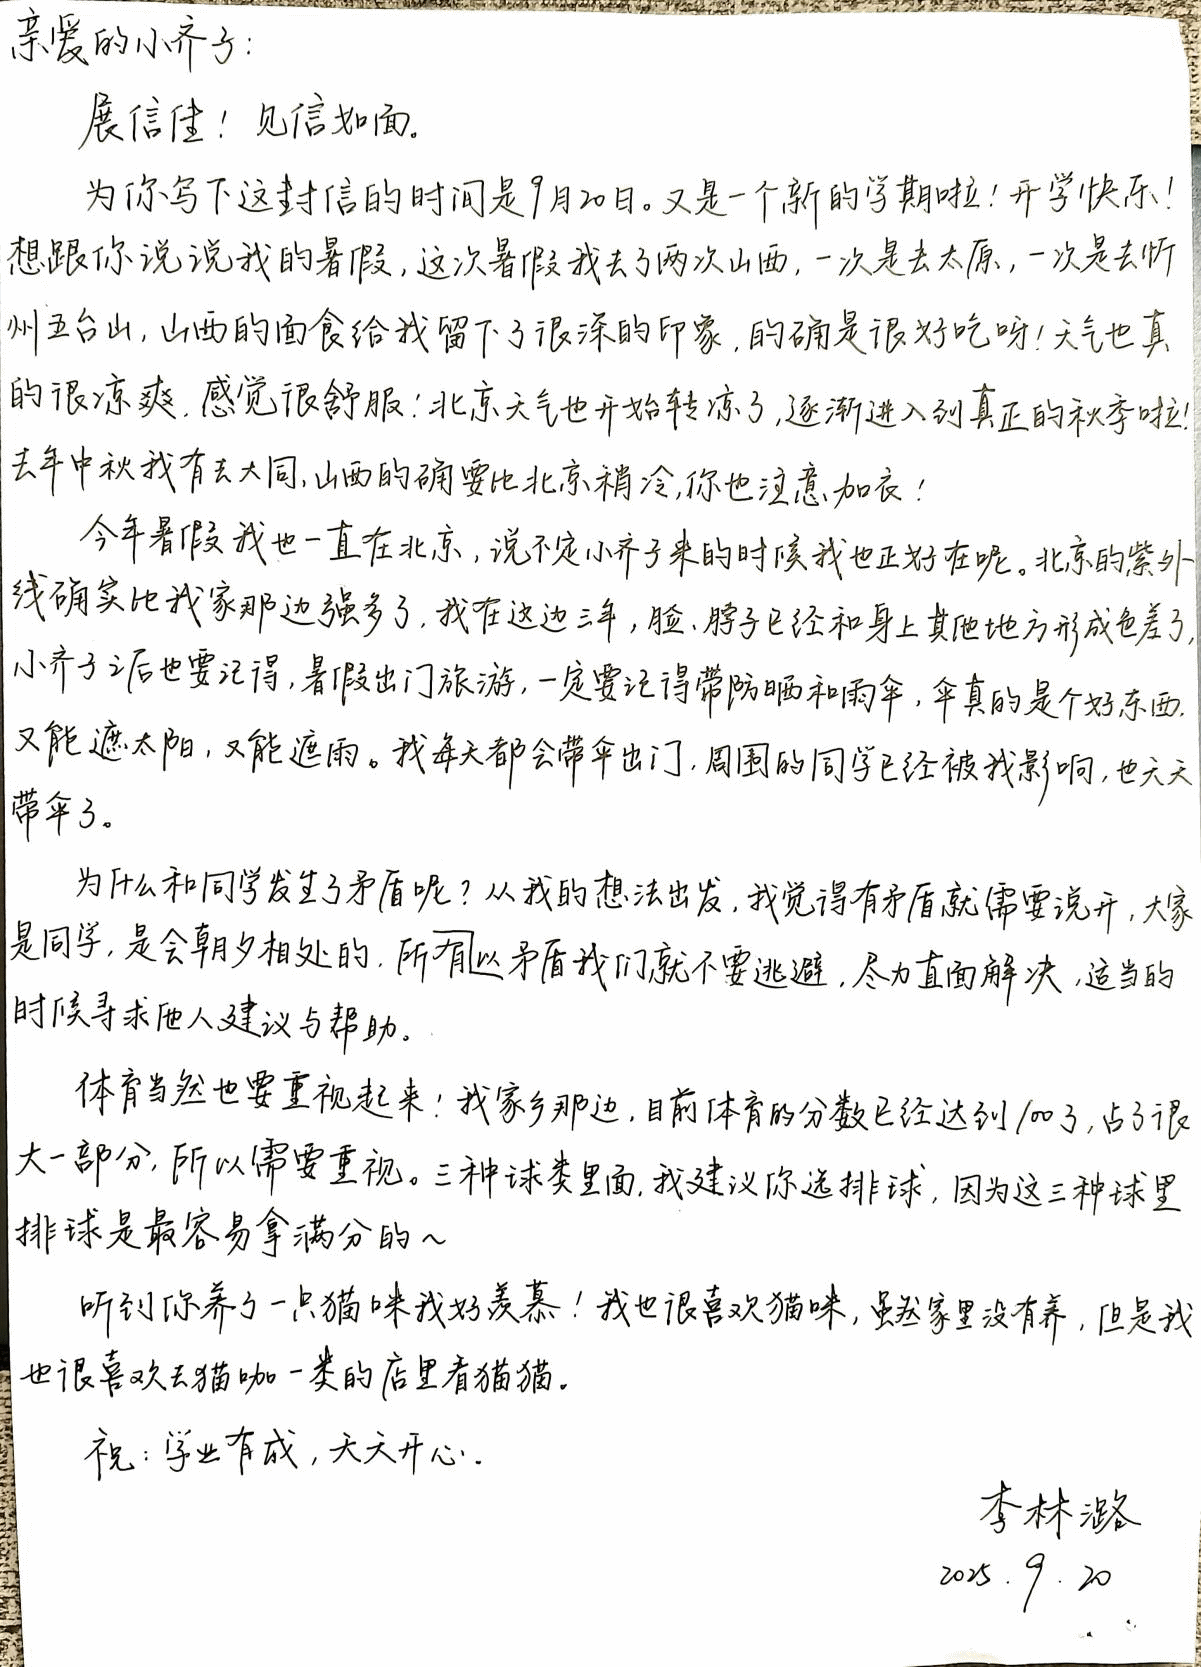 亲爱的小齐子：
展信佳！见信如面。
为你写下这封信的时间是9月20日。又是一个新的学期啦！开学快乐！
想跟你说说我的暑假，这次暑假我去了两次山西，一次是去太原，一次是去忻
州五台山，山西的面食给我留下了很深的印象，的确是很好吃呀！天气也真
的很凉爽，感觉很舒服！北京天气也开始转凉了，逐渐进入到真正的秋季啦！
去年中秋我有去大同，山西的确要比北京稍冷，你也注意加衣！
今年暑假我也一直在北京，说不定小齐子来的时候我也正好在呢。北京的紫外
线确实比我家那边强多了，我在这边三年，脸、脖子已经和身上其他地方形成色差了，
小齐子之后也要记得，暑假出门旅游，一定要记得带防晒和雨伞，伞真的是个好东西，
又能遮太阳，又能遮雨。我每天都会带伞出门，周围的同学已经被我影响，也天天
带伞了。
为什么和同学发生了矛盾呢？从我的想法出发，我觉得有矛盾就需要说开，大家
是同学，是会朝夕相处的，所有以矛盾我们就不要逃避，尽力直面解决，适当的
时候寻求他人建议与帮助。
体育当然也要重视起来！我家乡那边，目前体育的分数已经达到100了，占了很
大一部分，所以需要重视。三种球类里面，我建议你选排球，因为这三种球里
排球是最容易拿满分的～
听到你养了一只猫咪我好羡慕！我也很喜欢猫咪，虽然家里没有养，但是我
也很喜欢去猫咖一类的店里看猫猫。
祝：学业有成，天天开心．
李林潞
2025.9.20